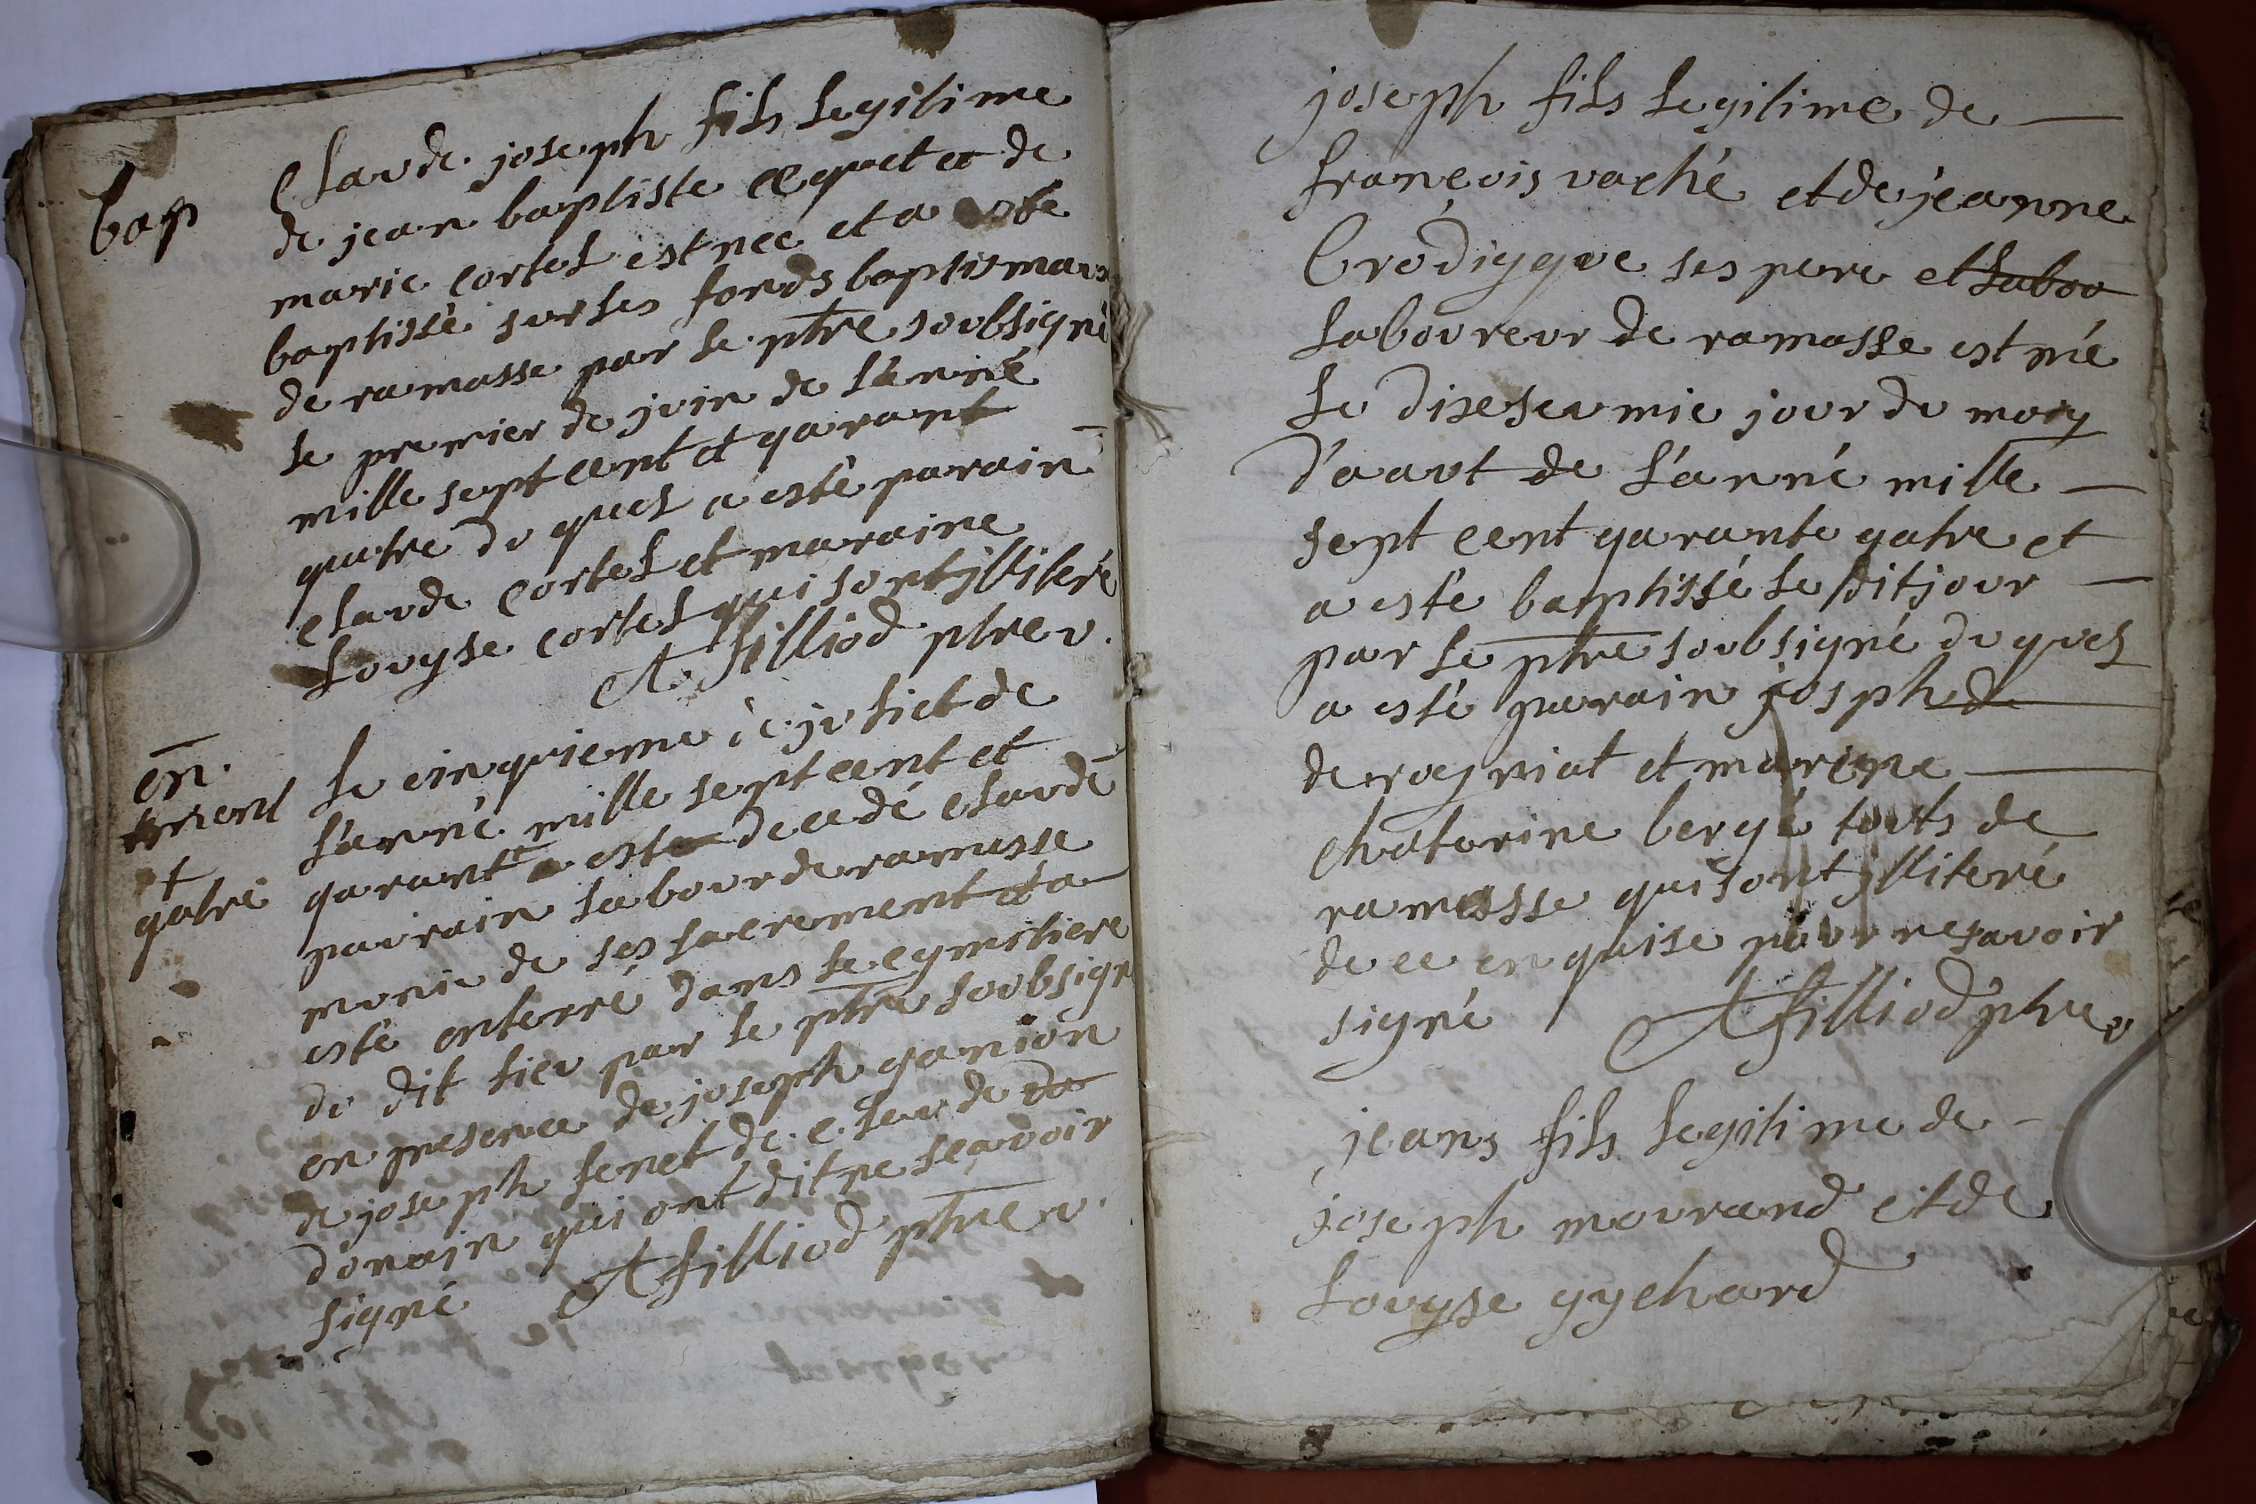 bap
Claude joseph fils legitime
de jean baptiste cequet et de
marie cortel est nee et a este
baptissé sur les fonds baptismaux
de ramasse par le ptre soubsigné
le premier de juin de l'anné
mille sept cent et qarant
quatre du quel a esté parain
claude cortel et maraine
Louyse cortel qui sont jlliteré
A filliod ptre v.
en.
terrement
et
qatre
Le cinquieme de juliet de
l'anné mille sept cent et
qarant a este decedé claude
paurain labour de ramasse
munie de ses sacrement et a
esté enterré dans le cymitiere
du dit lieu par le ptre soubsigné
en presence de josephganion
de joseph fenet de claude do
donain qui ont dit ne sçavoir
signé A filliod ptre v.
joseph fils legitime de
françois vaché et de jeanne
brodigque ses pere et labou
laboureur de ramasse est né
le diseseumie jour du moy
d'aaut de l'anné mille
sept cent qarante qatre et
a esté baptissé le dit jour
par le ptre soubsigné du quel
a esté parain josph de
de rogniat et marene
chaterine bergé touts de
ramasse qui sont jlliteré
de ce enquise pour ne savoir
signé A filliod ptre v
jeans fils legitime de
joseph mourand et de
Louyse gychard